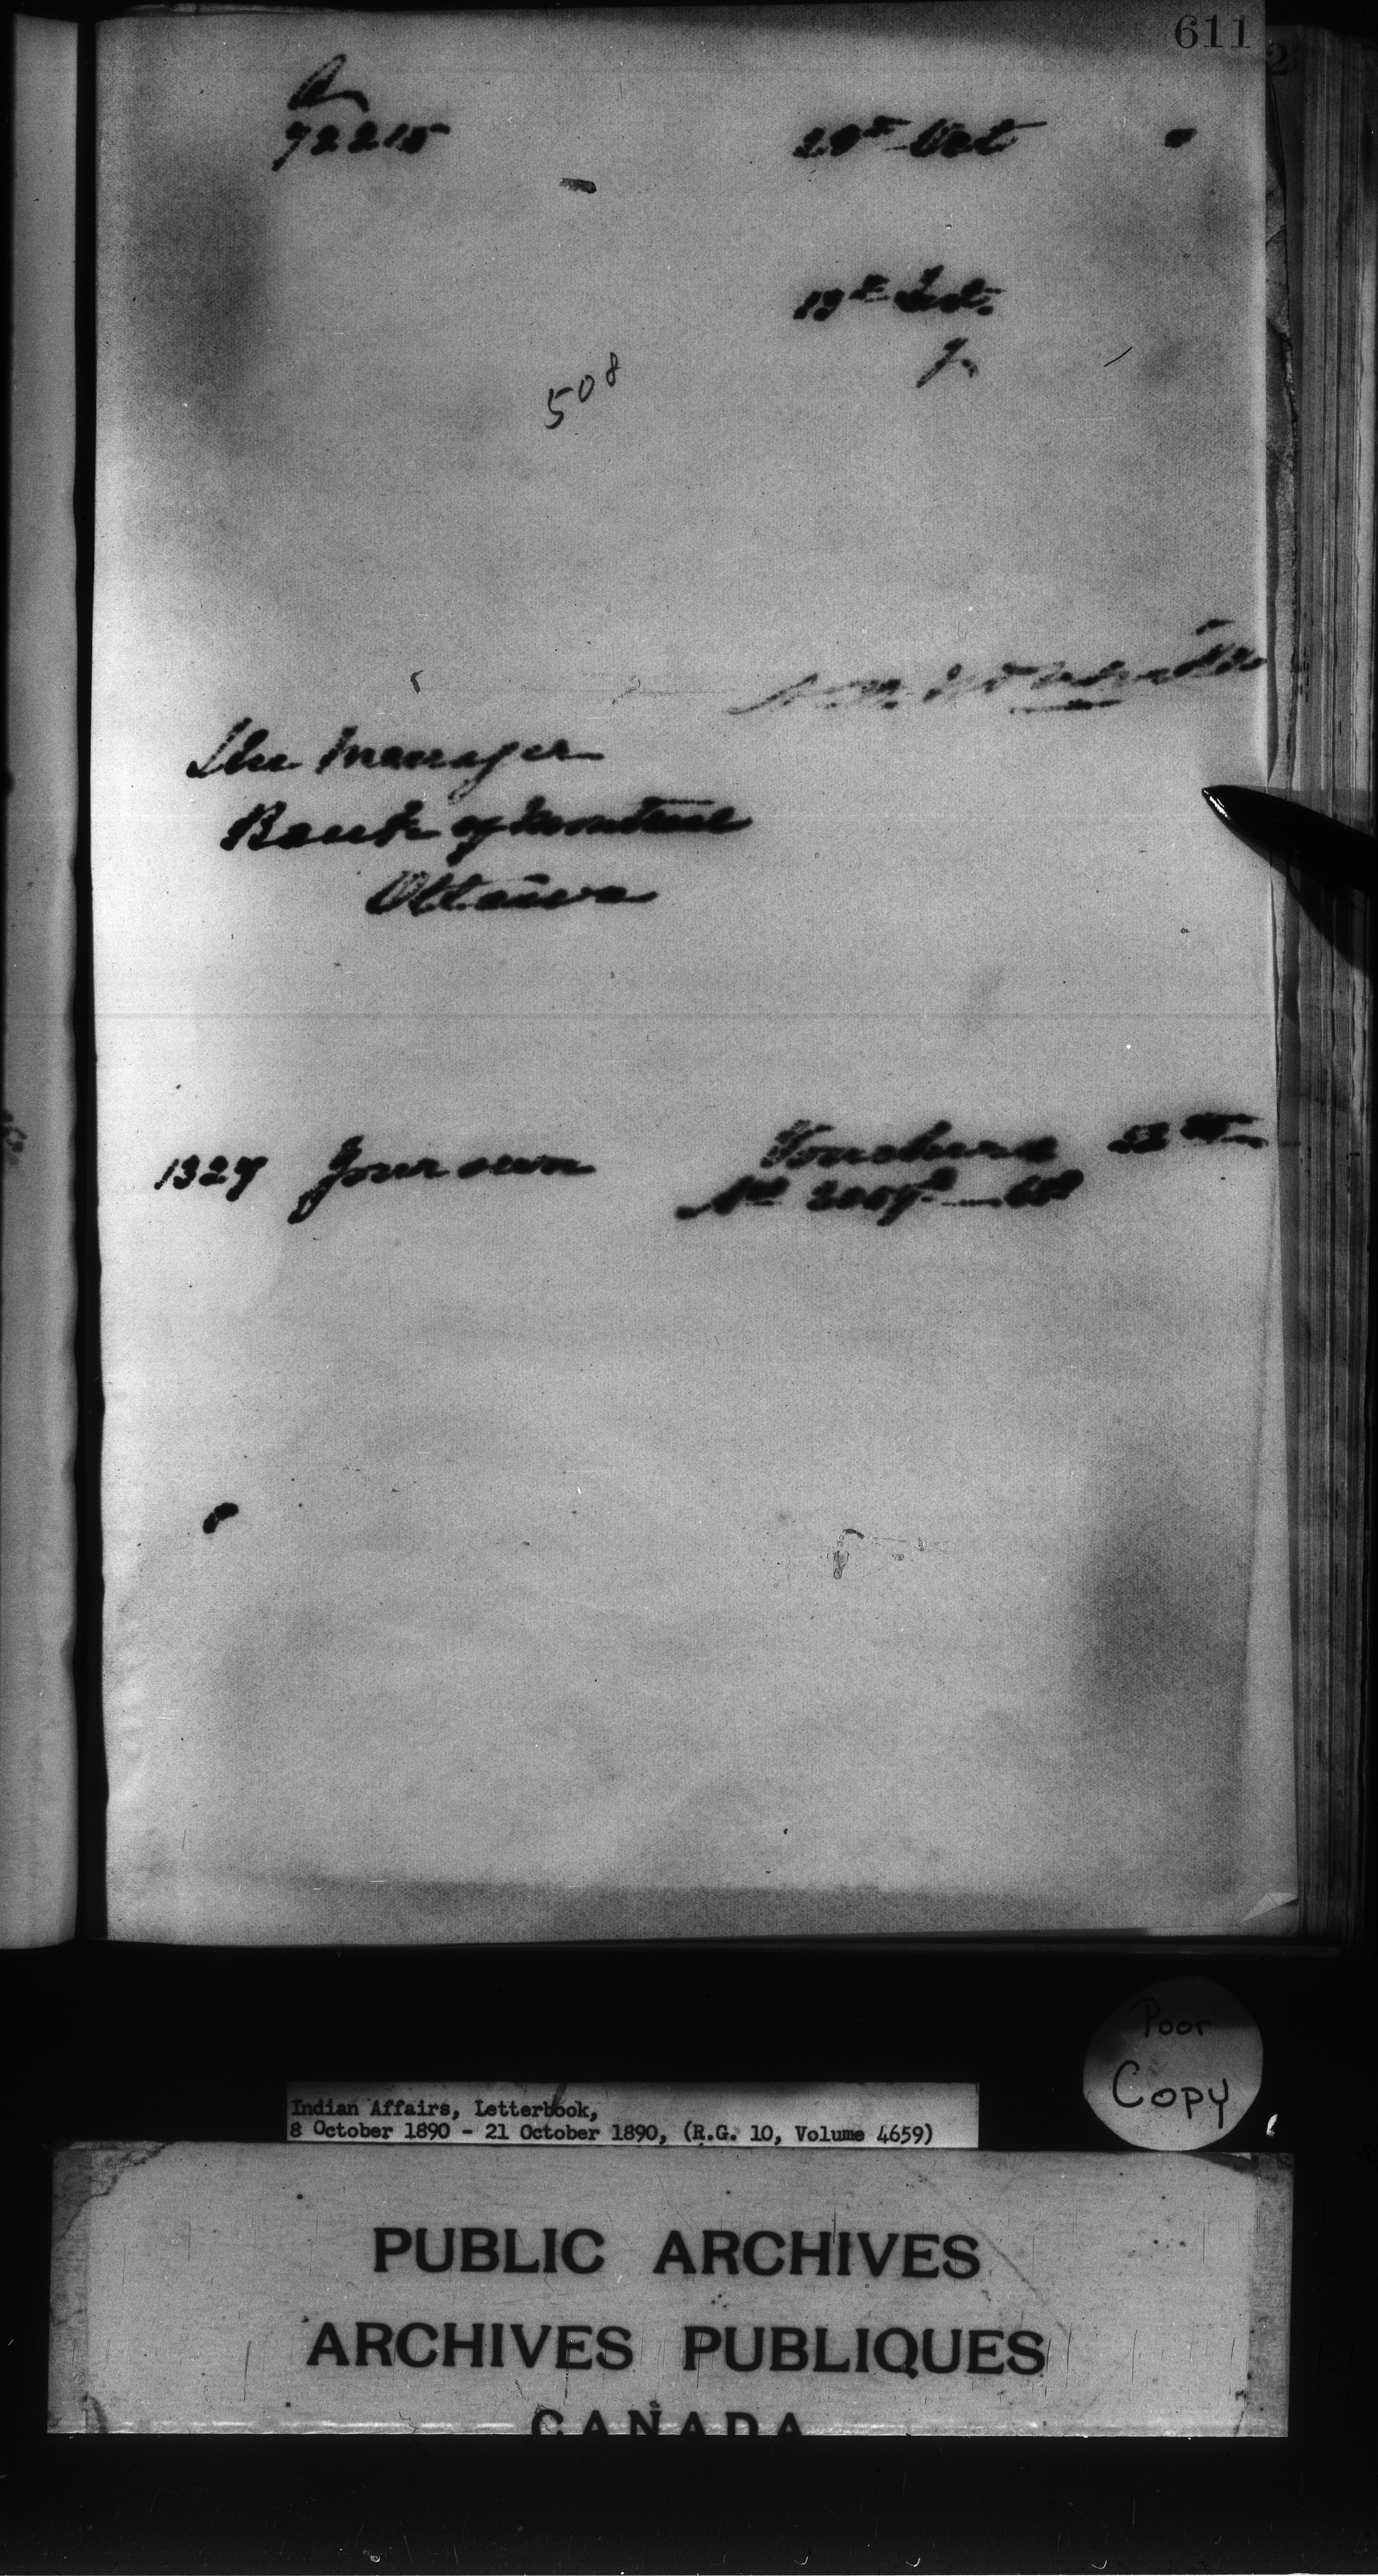 611
72215
20th Oct
13th Inst.
508
The Manager
Bank of Montreal
Ottawa
1327 Your own Vouchers
Poor
Copy
Indian Affairs, Letterbook,
8 October 1890 - 21 October 1890, (R.G. 10, Volume 4659)
PUBLIC ARCHIVES
ARCHIVES PUBLIQUES
CANADA